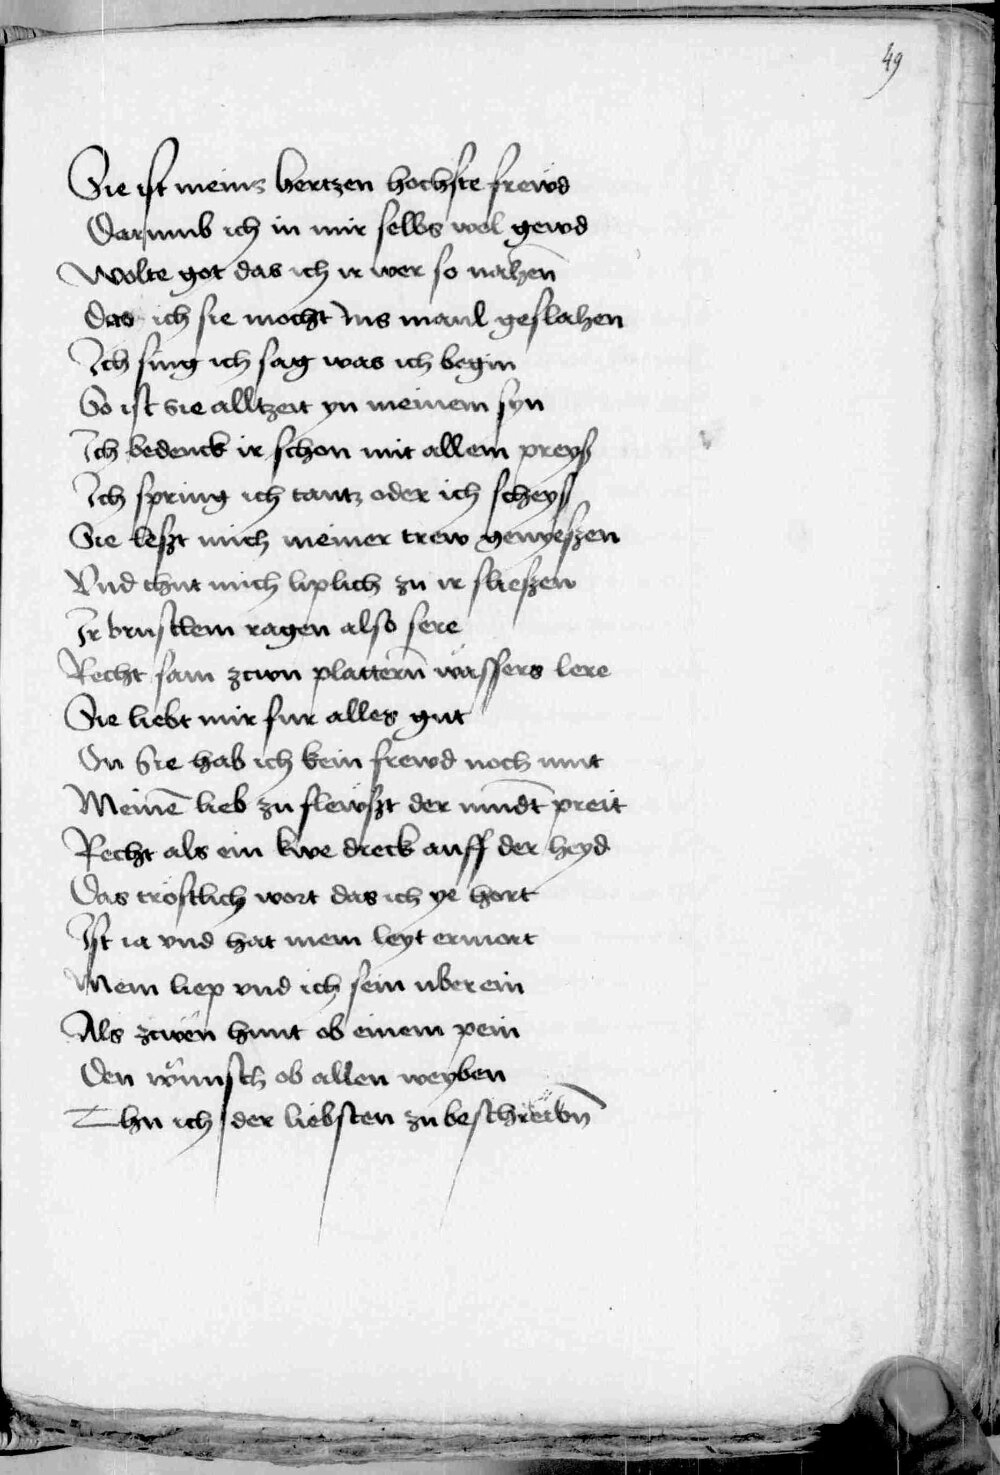 49
Sie ist meins hertzen hochste frewd
Darumb ich in mir selbs wol gewd
Wolte got das ich ir wer so nahen̄
Das ich sie mocht ins maul geslahen
Ich sing ich sag was ich begin
So ist sie alltzeit yn meinem syn
Ich bedenck ir schon mit allem preyß
Ich spring ich tantz oder ich scheyß
Sie leßt mich meiner trew genyeßzen
Vnd thut mich liplich zu ir sließzen
Ir brustlein ragen also sere
Recht sam zwu plattern̄ wassers lere
Sie liebt mir fur alles gut
On Sie hab ich kein frewd noch mut
Meinē lieb zu flewßt der mundt preit
Recht als ein kwe dreck auff der heyd
Das trostlich wort das ich ye hort
Ist ia vnd hat mein leyt ermort
Mein liep vnd ich sein uber ein
Als zwen hunt ob einem pein
Den wunsch ob allen weyben
Thu ich der liebsten zu beschreibn̄